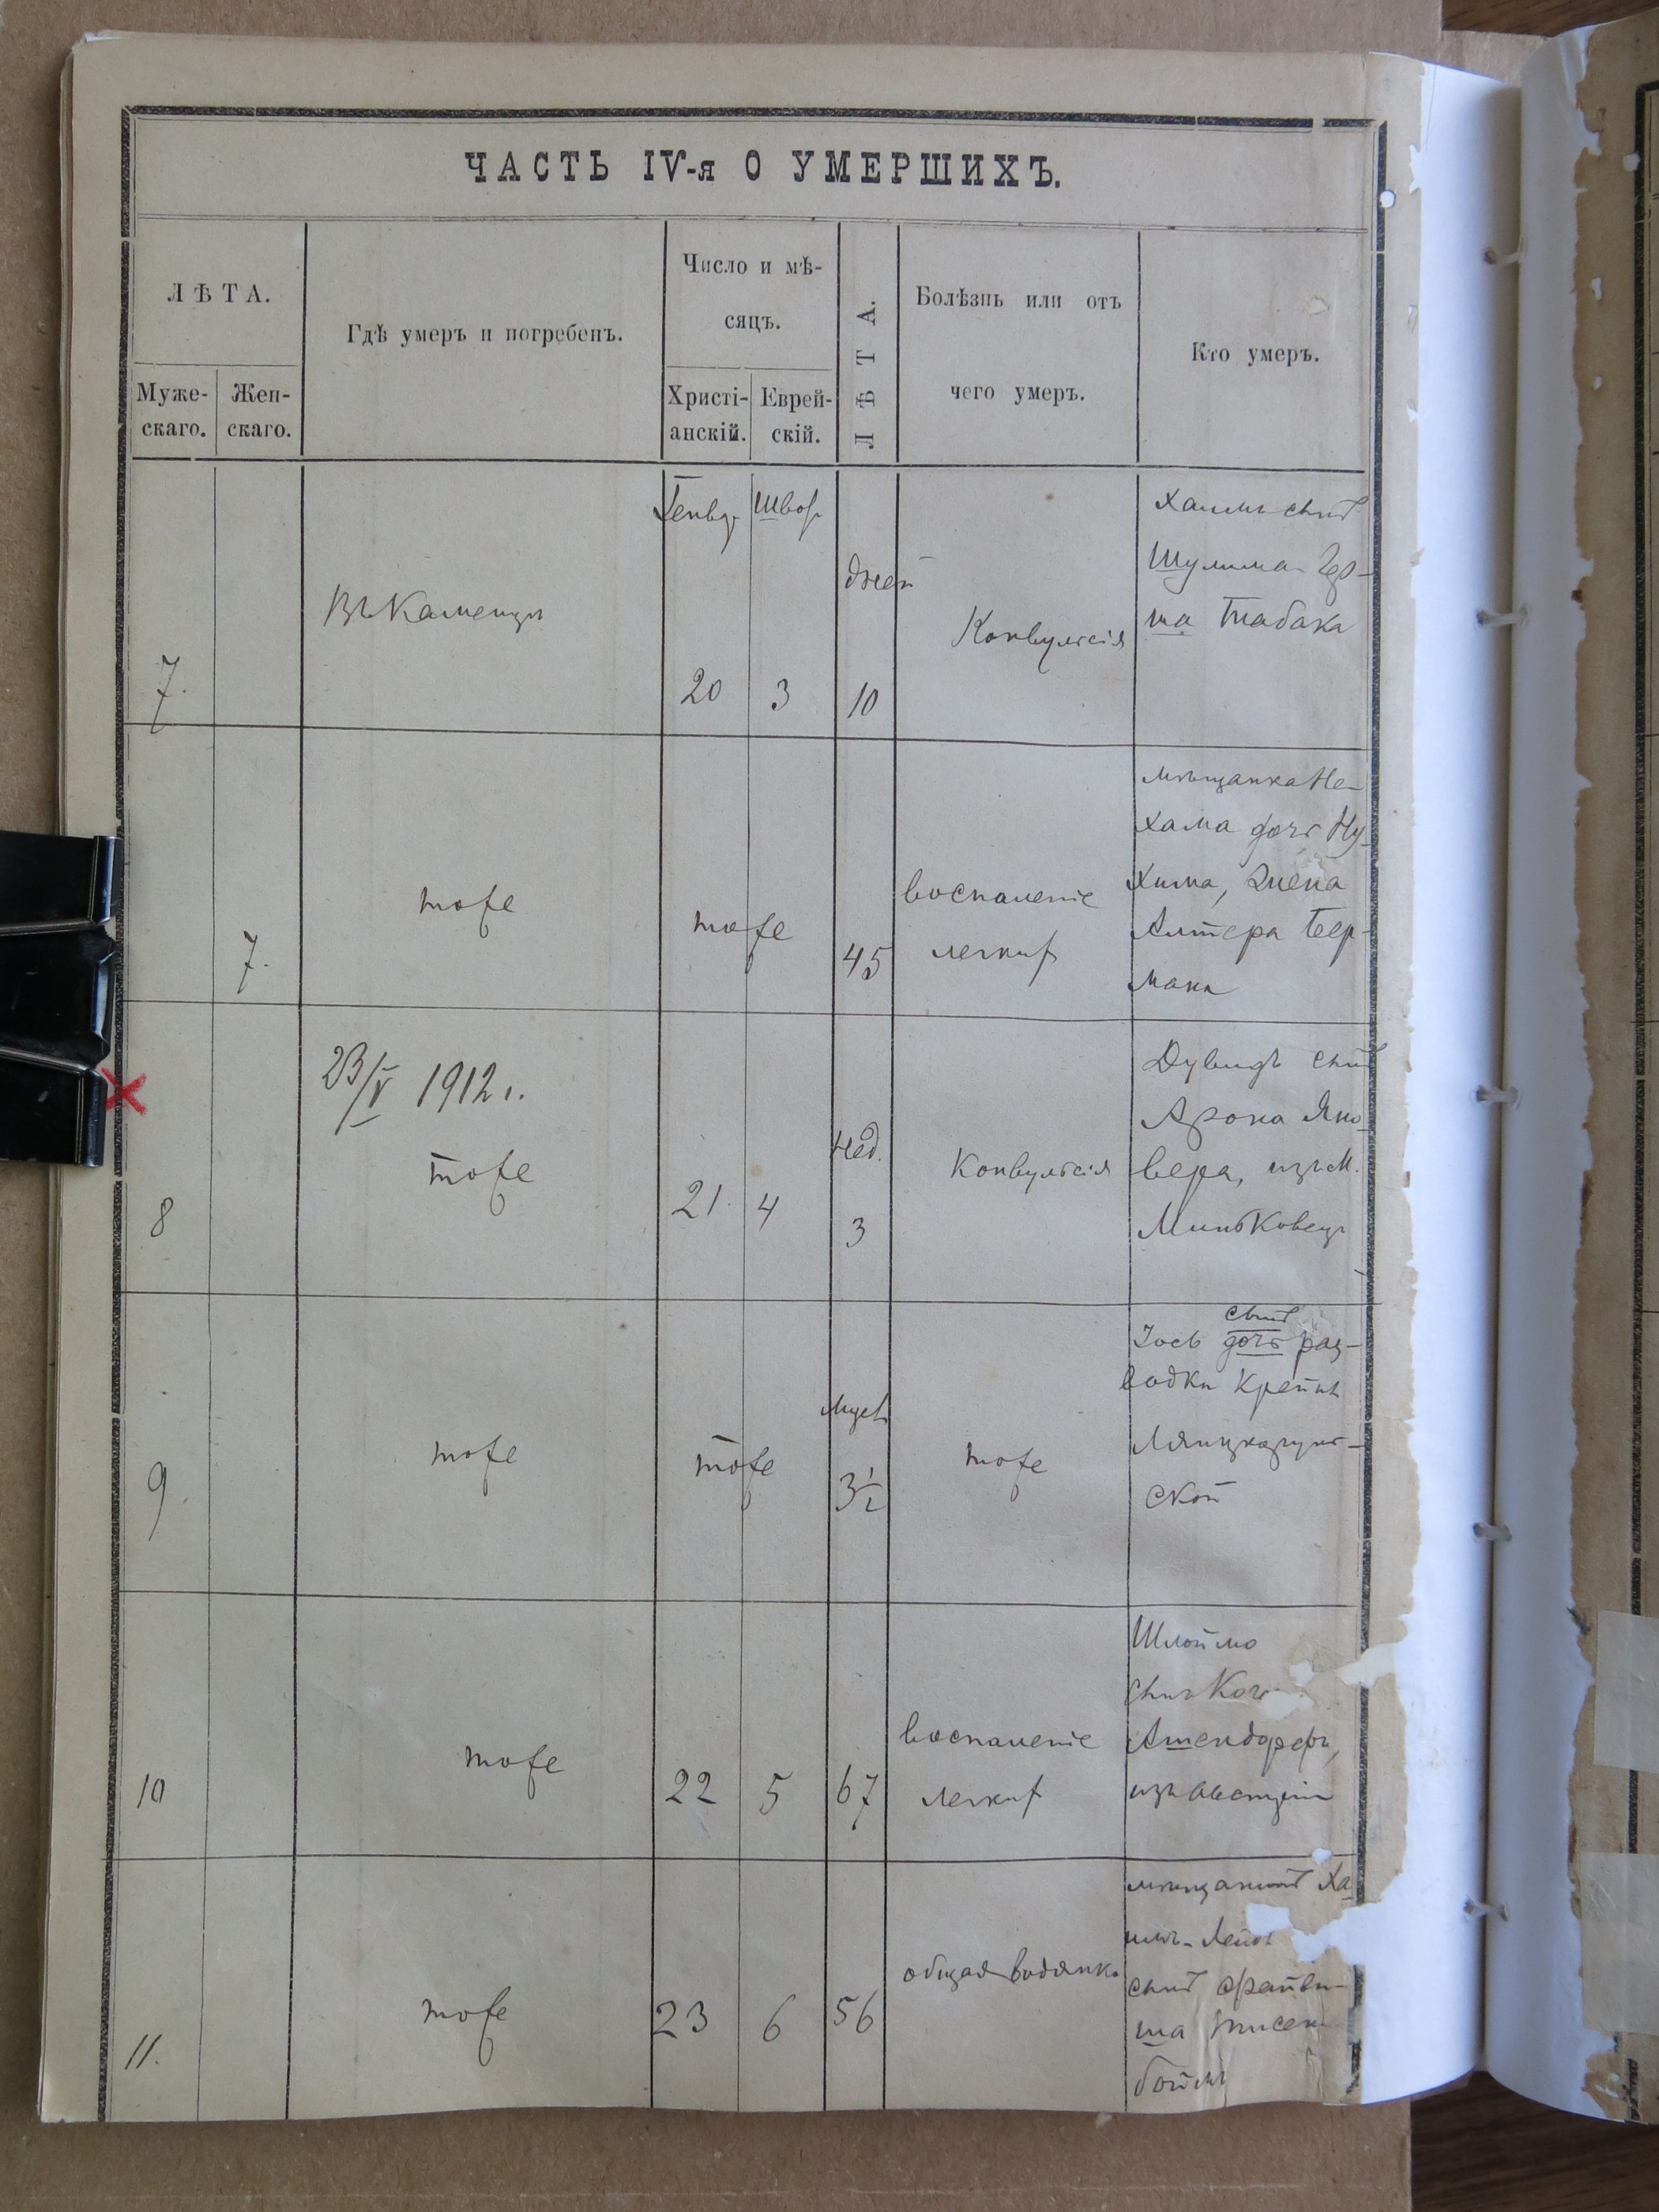 ЧАСТЬ IV-я О УМЕРШИХЪ.
ЛѢТА.
Муже-
скаго.
Жен-
скаго.
Гдѣ умеръ и погребенъ.
Число и мѣ-
сяцъ.
Христі-
анскій.
Еврей-
скій.
ЛѢТА.
Болѣзнь или отъ
чего умеръ.
Кто умеръ.
7.
Въ Каменцѣ
Генвр
Швот
20
3
дней
10
Конвульсія
Хаимъ сынъ
Шулима Гер-
ша Табака
7.
тоже
тоже
45
воспаленіе
легкихъ
мѣщанка Не-
хама дочь Ну-
хима, жена
Алтера Бер-
мана
8
23/V 1912 г.
тоже
21.
4
Нед.
3
Конвульсія
Дувидъ сынъ
Арона Яно-
вера, изъ м.
Миньковец
9.
тоже
тоже
Мцев
3½
тоже
Іось дочь раз-
сынъ
водки Крейнѣ
ской
10
тоже
22
5
67
воспаленіе
легкихъ
Шлоймо
сынъ
Ашендорфъ,
изъ Австріи
11.
тоже
23
6
56
общая водянка
мѣщанинъ Ха-
имъ-Лейб
сынъ
ша